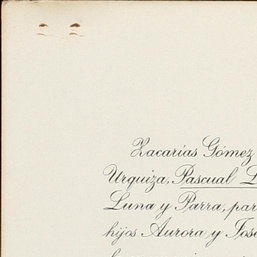 Zacarías Gómez
Urquiza, Pascual L
Luna y Parra, par
hijos Aurora y José